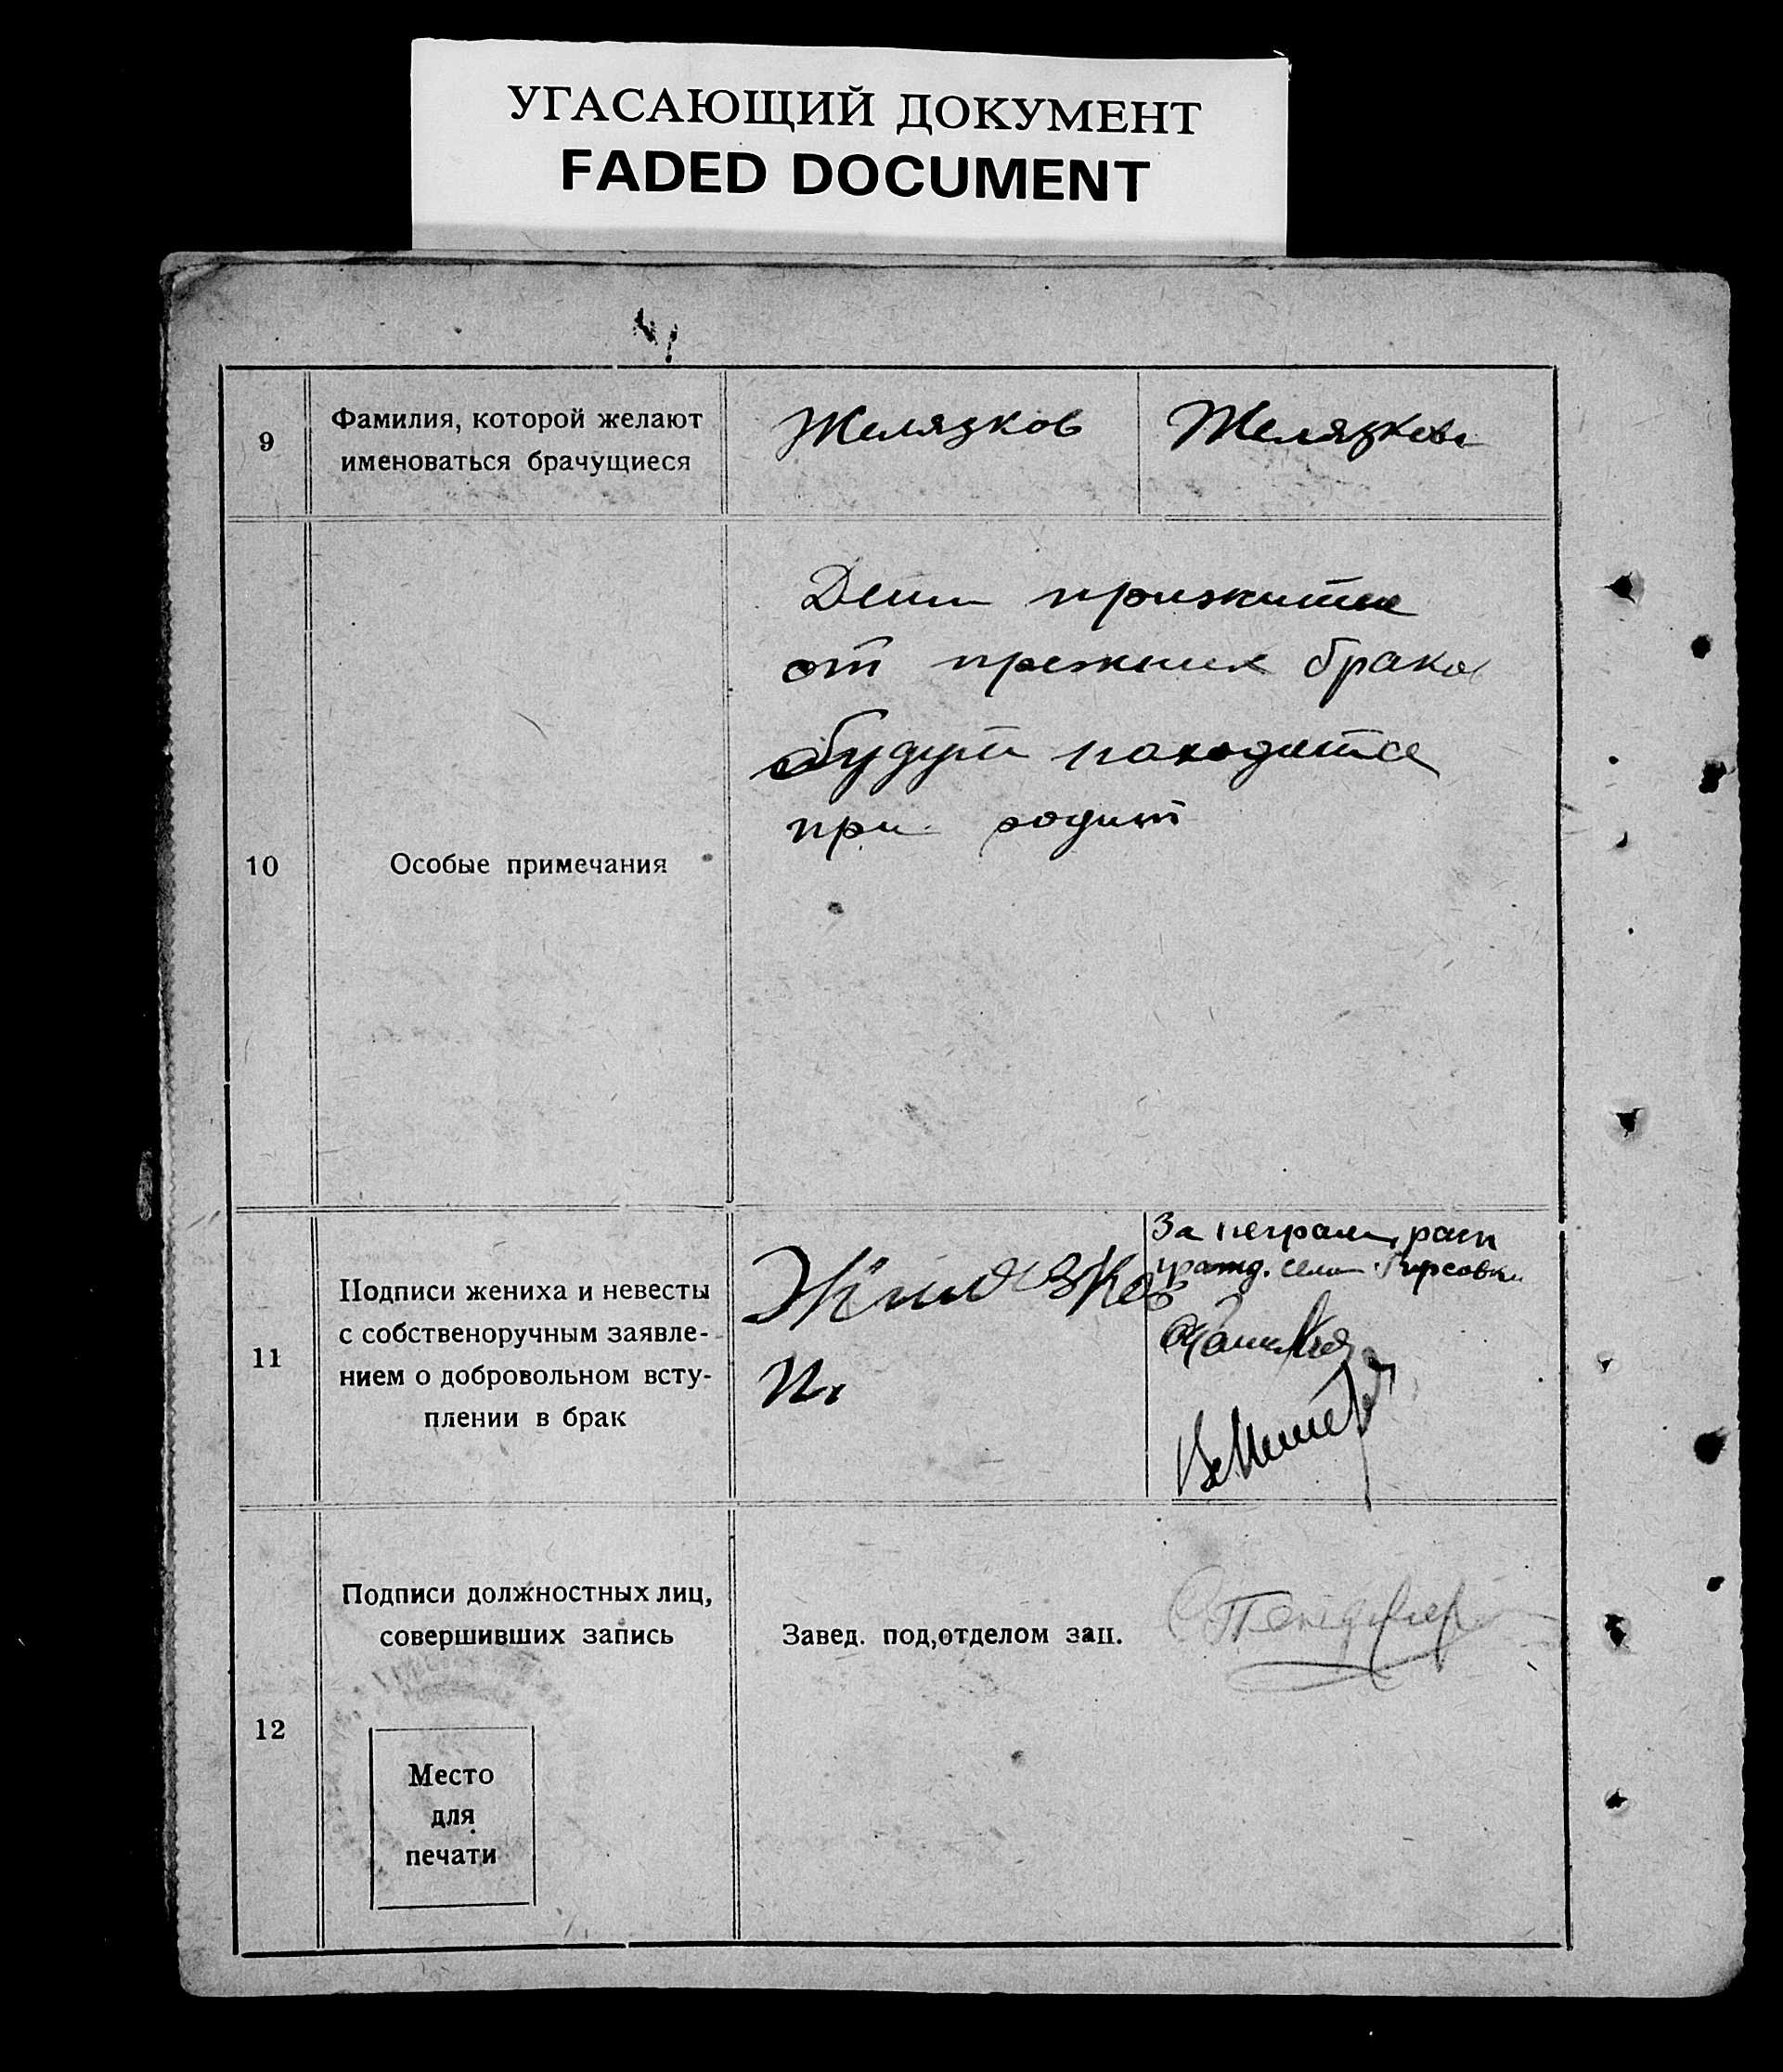 УГАСАЮЩИЙ ДОКУМЕНТ
FADED DOCUMENT
9
Фамилия, которой желают
именоваться брачущиеся
Желязков
Желязкова
10
Особые примечания
Дети прижитые
от прежних браков
будут находится
при родит
11
Подписи жениха и невесты
с собственоручным заявле-
нием о добровольном всту-
плении в брак
Желязков
За неграм. расп
гражд. села Кирсовки
12
Подписи должностных лиц,
совершивших запись
Завед. под,отделом зап.
Место
для
печати